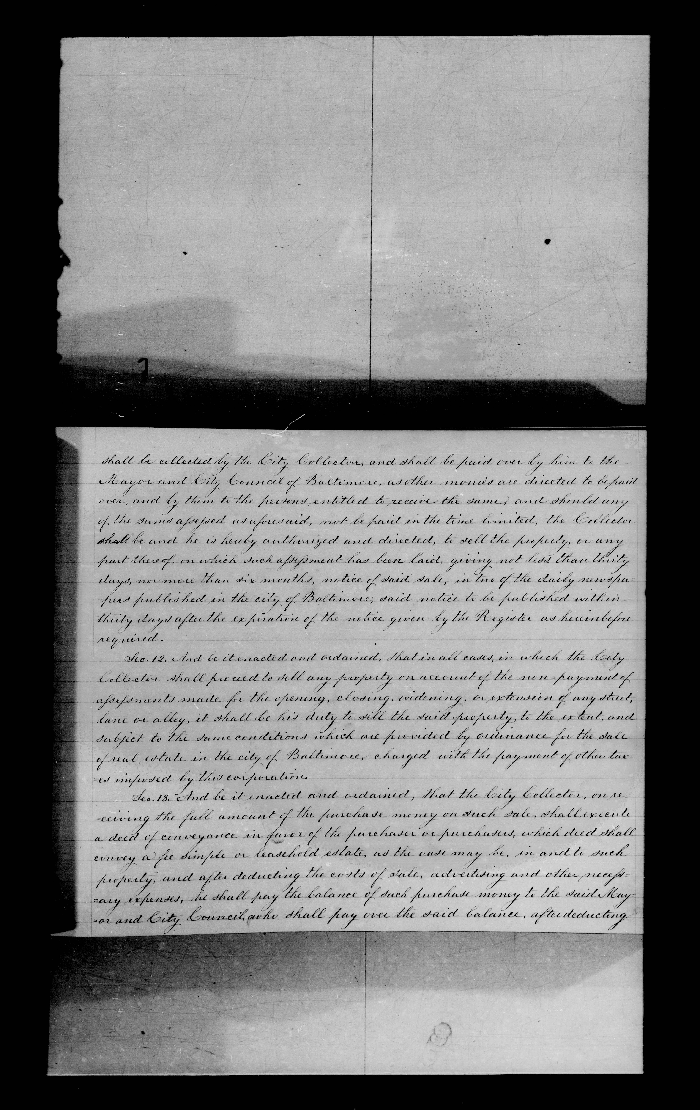 shall be collected by the City Collector, and shall be paid over by him to the
Mayor and City Council of Baltimore, as other monies are directed to be paid
over, and by them to the persons entitled to receive the same; and should any
of the sums assessed as aforesaid, not be paid in the time limited, the Collector
shall be and he is hereby authorized and directed, to sell the property, or any
part thereof, on which such assessment has been laid, giving not less than thirty
days, nor more than six months, notice of said sale, in two of the daily newspa-
pers published in the city of Baltimore, said notice to be published within
thirty days after the expiration of the notice given by the Register as hereinbefore
required.
Sec. 12. And be it enacted and ordained, that in all cases, in which the City
Collector shall proceed to sell any property on account of the non-payment of
assessments made for the opening, closing, widening, or extension of any street,
lane or alley, it shall be his duty to sell the said property, to the extent, and
subject to the same conditions which are provided by ordinance for the sale
of real estate in the city of Baltimore, charged with the payment of other tax-
es imposed by this corporation.
Sec. 13. And be it enacted and ordained, that the City Collector, on re-
ceiving the full amount of the purchase money on such sale, shall execute
a deed of conveyance in favor of the purchaser or purchasers, which deed shall
convey a fee simple or leasehold estate, as the case may be, in and to such
property, and after deducting the costs of sale, advertising and other necess-
ary expenses, he shall pay the balance of such purchase money to the said May-
or and City Council, who shall pay over the said balance, after deducting